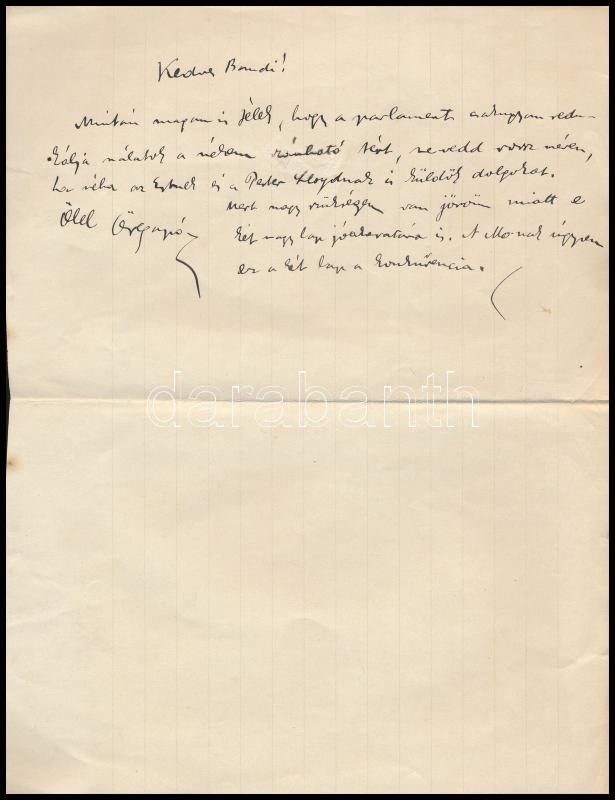 Kedves Bandi!
Miután magam is félek, hogy a parlament csakugyan redu-
kálja nálatok a nekem szánható tért, ne vedd rossz néven,
ha néha az Estnek és a Pester Lloydnak is küldök dolgokat.
Mert nagy szükségem van jövőm miatt e
két nagy lap jóakaratára is. A Mo-nak úgysem
ez a két lap a konkurrencia.
Ölel
darabanth